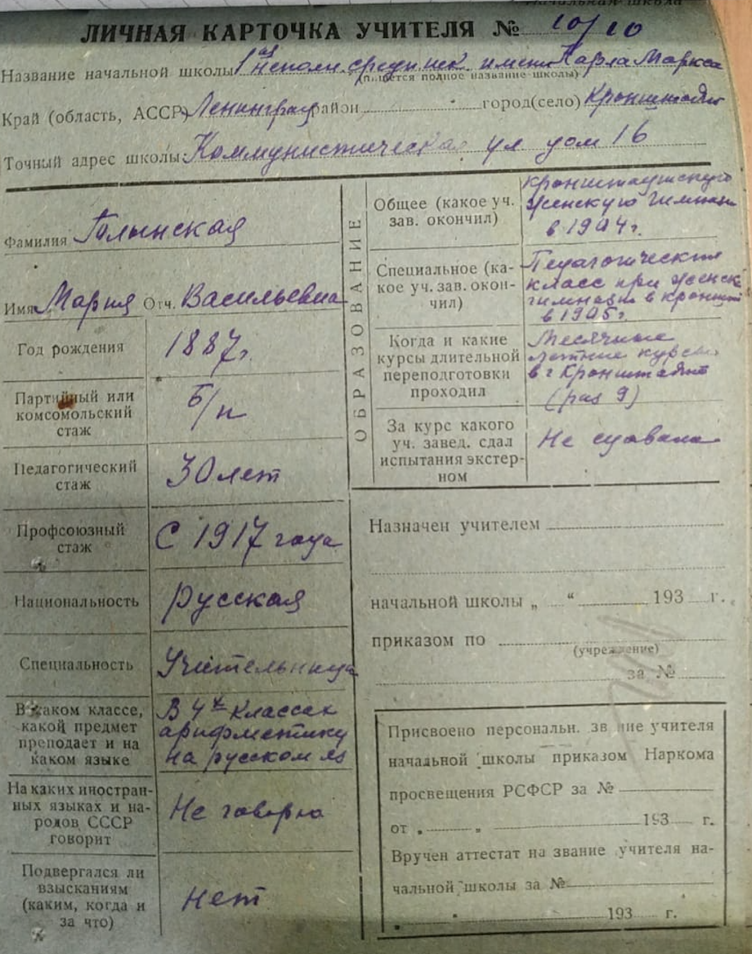 Начальная школа
ЛИЧНАЯ КАРТОЧКА УЧИТЕЛЯ № 10/10
Название начальной школы 1ая неполн. средн. шк. имени Карла Маркса
(пишется полное название школы)
Край (область, АССР) Ленинград район город(село) Кронштадт
Точный адрес школы Коммунистическая ул дом 16
Фамилия Голынская
Имя Мария Отч. Васильевна
Год рождения 1887г.
Партийный или комсомольский стаж Б/п
Педагогический стаж 30 лет
Профсоюзный стаж С 1917 года
Национальность русская
Специальность Учительница
В каком классе, какой предмет преподает и на каком языке В 4х классах арифметику на русском яз
На каких иностранных языках и народов СССР говорит Не говорю
Подвергался ли взысканиям (каким, когда и за что) нет
ОБРАЗОВАНИЕ
Общее (какое уч. зав. окончил) Кронштадтскую женскую гимназ в 1904г.
Специальное (какое уч. зав. окончил) Педагогический класс при женск гимназии в кроншт в 1905г.
Когда и какие курсы длительной переподготовки проходил Месячные летние курсы в г Кронштадт (раз 9)
За курс какого уч. завед. сдал испытания экстерном Не сдавала
Назначен учителем
начальной школы „ “ 193 г.
приказом по
(учреждение)
за №
Присвоено персональн. зв ние учителя
начальной школы приказом Наркома
просвещения РСФСР за №
от „ „ 193 г.
Вручен аттестат на звание учителя на-
чальной школы за №
„ „ 193 г.